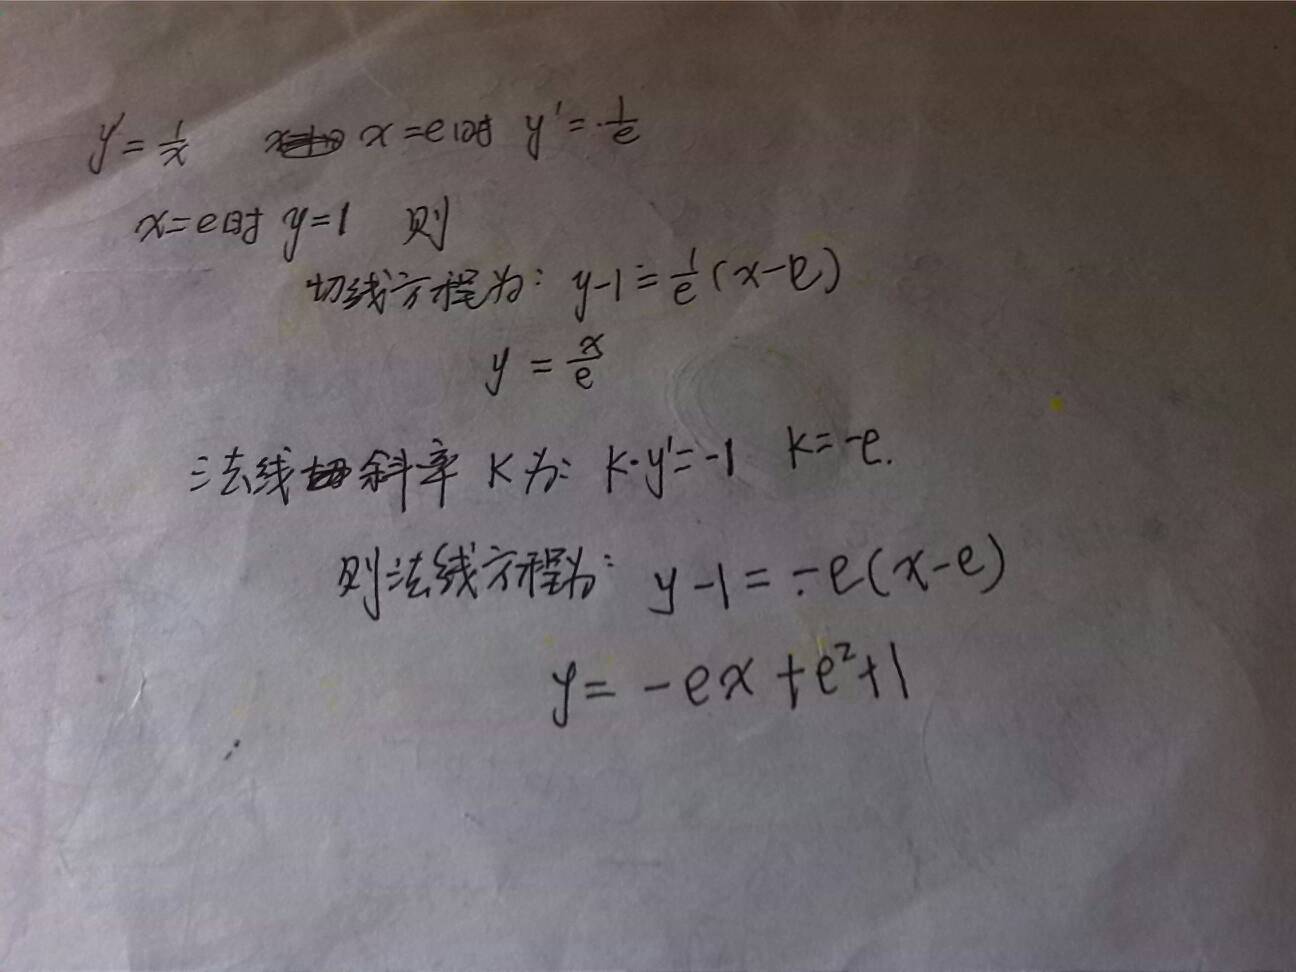 y'=1/x x=e时 y'=1/e
x=e时 y=1 则
切线方程为: y-1=1/e(x-e)
y=x/e
法线斜率K为: K·y'=-1 K=-e.
则法线方程为: y-1=-e(x-e)
y=-ex+e²+1